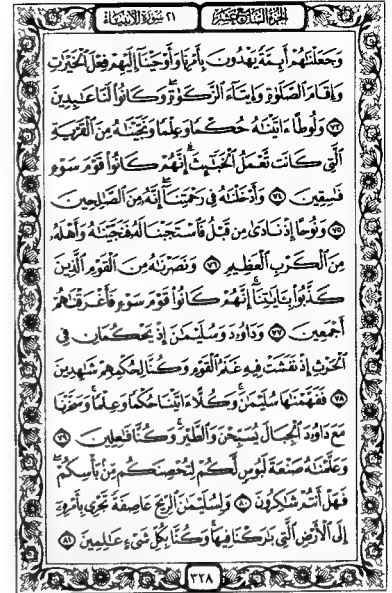 الجزء السابع عشر ٢١ سورة الأنبياء
وَجَعَلْنَٰهُمْ أَئِمَّةً يَهْدُونَ بِأَمْرِنَا وَأَوْحَيْنَآ إِلَيْهِمْ فِعْلَ ٱلْخَيْرَٰتِ
وَإِقَامَ ٱلصَّلَوٰةِ وَإِيتَآءَ ٱلزَّكَوٰةِ ۖ وَكَانُوا۟ لَنَا عَٰبِدِينَ
﴿٧٣﴾ وَلُوطًا ءَاتَيْنَٰهُ حُكْمًا وَعِلْمًا وَنَجَّيْنَٰهُ مِنَ ٱلْقَرْيَةِ
ٱلَّتِى كَانَت تَّعْمَلُ ٱلْخَبَٰٓئِثَ ۗ إِنَّهُمْ كَانُوا۟ قَوْمَ سَوْءٍ
فَٰسِقِينَ ﴿٧٤﴾ وَأَدْخَلْنَٰهُ فِى رَحْمَتِنَآ ۖ إِنَّهُۥ مِنَ ٱلصَّٰلِحِينَ
﴿٧٥﴾ وَنُوحًا إِذْ نَادَىٰ مِن قَبْلُ فَٱسْتَجَبْنَا لَهُۥ فَنَجَّيْنَٰهُ وَأَهْلَهُۥ
مِنَ ٱلْكَرْبِ ٱلْعَظِيمِ ﴿٧٦﴾ وَنَصَرْنَٰهُ مِنَ ٱلْقَوْمِ ٱلَّذِينَ
كَذَّبُوا۟ بِـَٔايَٰتِنَآ ۚ إِنَّهُمْ كَانُوا۟ قَوْمَ سَوْءٍ فَأَغْرَقْنَٰهُمْ
أَجْمَعِينَ ﴿٧٧﴾ وَدَاوُۥدَ وَسُلَيْمَٰنَ إِذْ يَحْكُمَانِ فِى
ٱلْحَرْثِ إِذْ نَفَشَتْ فِيهِ غَنَمُ ٱلْقَوْمِ وَكُنَّا لِحُكْمِهِمْ شَٰهِدِينَ
﴿٧٨﴾ فَفَهَّمْنَٰهَا سُلَيْمَٰنَ ۚ وَكُلًّا ءَاتَيْنَا حُكْمًا وَعِلْمًا ۚ وَسَخَّرْنَا
مَعَ دَاوُۥدَ ٱلْجِبَالَ يُسَبِّحْنَ وَٱلطَّيْرَ ۚ وَكُنَّا فَٰعِلِينَ ﴿٧٩﴾
وَعَلَّمْنَٰهُ صَنْعَةَ لَبُوسٍ لَّكُمْ لِتُحْصِنَكُم مِّنۢ بَأْسِكُمْ ۖ
فَهَلْ أَنتُمْ شَٰكِرُونَ ﴿٨٠﴾ وَلِسُلَيْمَٰنَ ٱلرِّيحَ عَاصِفَةً تَجْرِى بِأَمْرِهِۦٓ
إِلَى ٱلْأَرْضِ ٱلَّتِى بَٰرَكْنَا فِيهَا ۚ وَكُنَّا بِكُلِّ شَىْءٍ عَٰلِمِينَ ﴿٨١﴾
٣٢٨